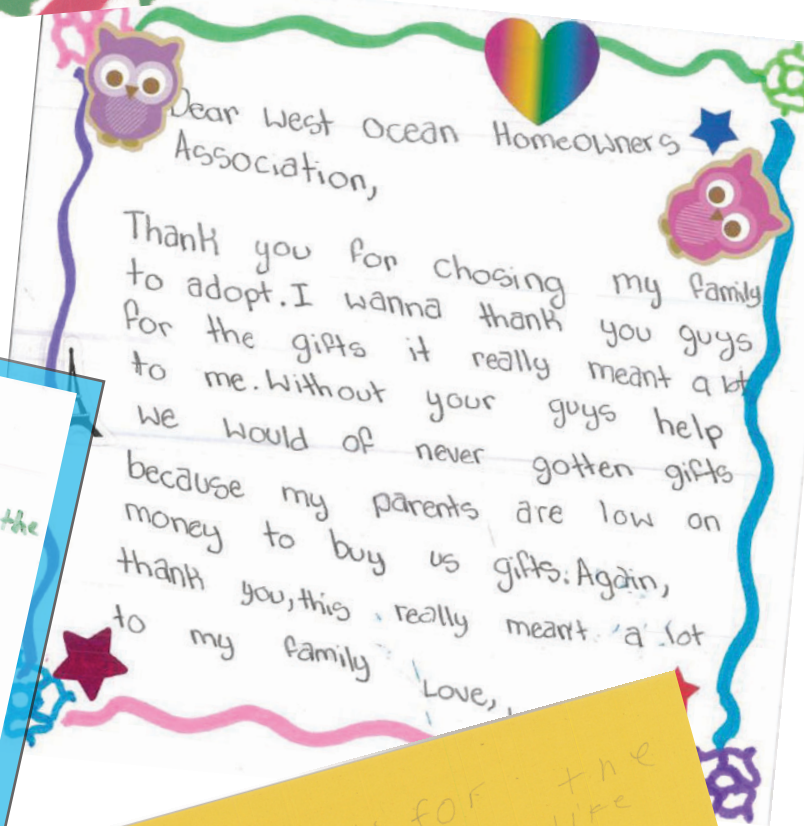 Dear West Ocean Homeowners
Association,
Thank you for chosing my family
to adopt. I wanna thank you guys
for the gifts it really meant a lot
to me. Without your guys help
we would of never gotten gifts
because my parents are low on
money to buy us gifts. Again,
thank you, this really meant a lot
to my family
Love,
the
for the